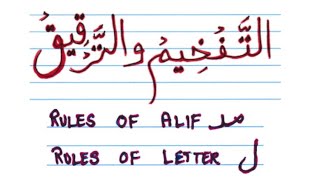 التَّفْخِيمُ والتَّرْقِيقُ
RULES OF ALIF مد
RULES OF LETTER ل